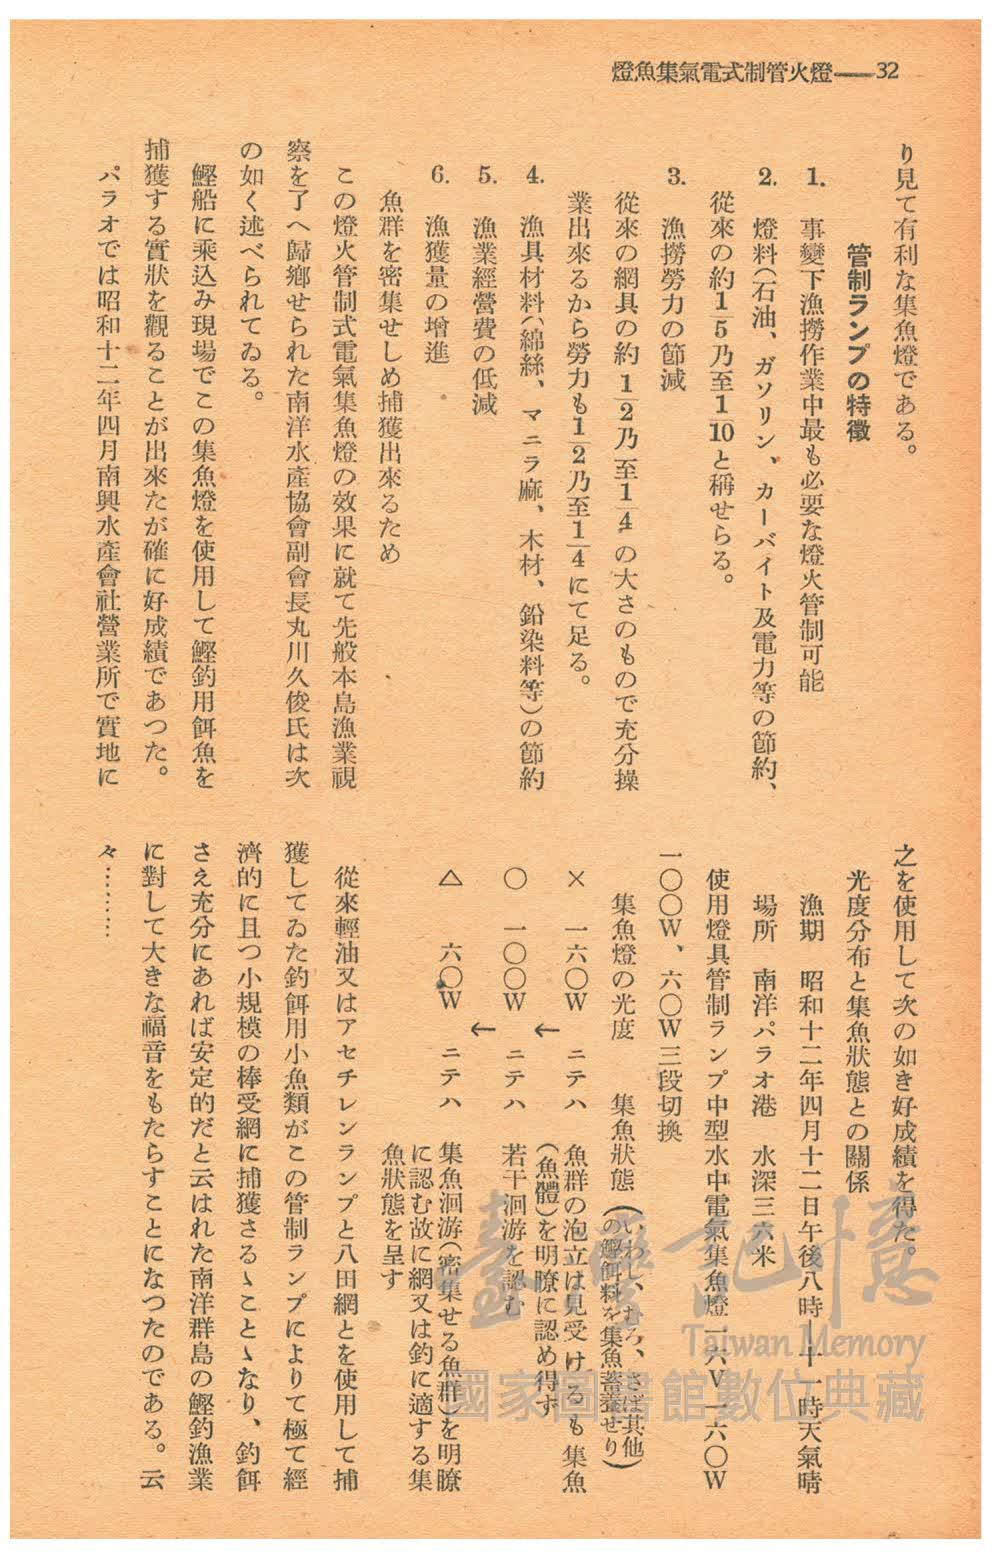 燈魚集氣電式制管火燈——32
り見て有利な集魚燈である。
管制ランプの特徵
1. 事變下漁撈作業中最も必要な燈火管制可能
2. 燈料（石油、ガソリン、カーバイト及電力等の節約、
從來の約1/5乃至1/10と稱せらる。
3. 漁撈勞力の節減
從來の網具の約1/2乃至1/4の大さのもので充分操
業出來るから勞力も1/2乃至1/4にて足る。
4. 漁具材料（綿絲、マニラ麻、木材、鉛染料等）の節約
5. 漁業經營費の低減
6. 漁獲量の增進
魚群を密集せしめ捕獲出來るため
この燈火管制式電氣集魚燈の效果に就て先般本島漁業視
察を了へ歸鄕せられた南洋水產協會副會長丸川久俊氏は次
の如く述べられてゐる。
鰹船に乘込み現場でこの集魚燈を使用して鰹釣用餌魚を
捕獲する實狀を觀ることが出來たが確に好成績であつた。
パラオでは昭和十二年四月南興水產會社營業所で實地に
之を使用して次の如き好成績を得た。
光度分布と集魚狀態との關係
漁期 昭和十二年四月十二日午後八時—十一時天氣晴
場所 南洋パラオ港 水深三六米
使用燈具管制ランプ中型水中電氣集魚燈一六V一六〇W
一〇〇W、六〇W三段切換
集魚燈の光度 集魚狀態（いわし、むろ、さば其他
の鰹餌料を集魚蓄養せり）
× 一六〇W ニテハ 魚群の泡立は見受けるも集魚
（魚體）を明瞭に認め得ず
↓
〇 一〇〇W ニテハ 若干洄游を認む
↓
△ 六〇W ニテハ 集魚洄游（密集せる魚群）を明瞭
に認む故に網又は釣に適する集
魚狀態を呈す
從來輕油又はアセチレンランプと八田網とを使用して捕
獲してゐた釣餌用小魚類がこの管制ランプによりて極て經
濟的に且つ小規模の棒受網に捕獲さるゝことゝなり、釣餌
さえ充分にあれば安定的だと云はれた南洋群島の鰹釣漁業
に對して大きな福音をもたらすことになつたのである。云
々………
臺灣記憶
Taiwan Memory
國家圖書館數位典藏